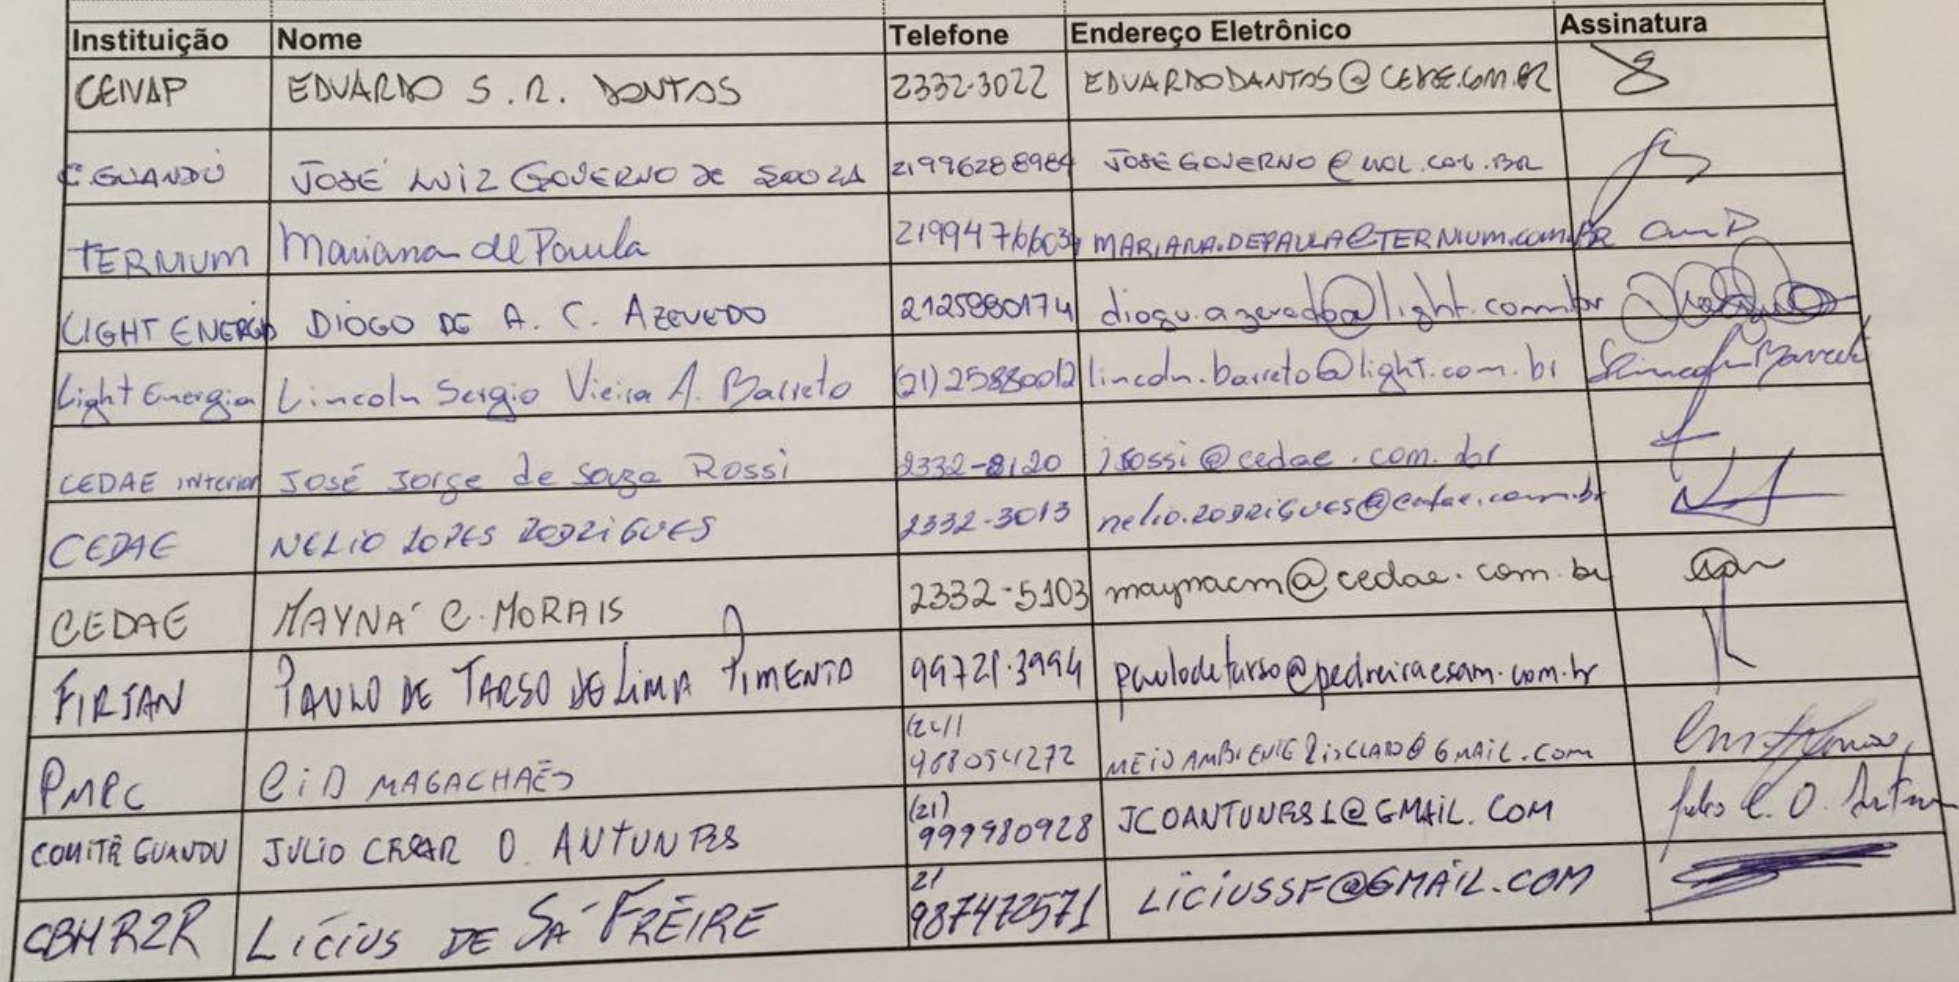 Instituição Nome Telefone Endereço Eletrônico Assinatura
CEIVAP EDUARDO S. R. DANTAS 2332-3022 EDUARDODANTAS@CEDAE.COM.BR
C.GUANDU JOSÉ LUIZ GOVERNO DE SOUZA 21996288984 JOSEGOVERNO@UOL.COM.BR
TERNIUM Mariana de Paula 21994766034 MARIANA.DEPAULA@TERNIUM.COM.BR
LIGHT ENERGIA DIOGO DE A. C. AZEVEDO 2125880174 diogo.azevedo@light.com.br
Light Energia Lincoln Sergio Vieira A. Barreto (21)25880012 lincoln.barreto@light.com.br Lincoln Barreto
CEDAE interior José Jorge de Souza Rossi 2332-8120 jrossi@cedae.com.br
CEDAE NELIO LOPES RODRIGUES 2332-3013 nelio.rodrigues@cedae.com.br
CEDAE MAYNÁ C. MORAIS 2332-5103 maynacm@cedae.com.br
FIRJAN PAULO DE TARSO DE LIMA PIMENTA 99721-3994 paulodetarso@pedreiraesam.com.br
PMRC CID MAGALHAES 968054272 MEIOAMBIENTERIOCLARO@GMAIL.COM
COMITÊ GUANDU JULIO CESAR O. ANTUNES (21) 999980928 JCOANTUNES1@GMAIL.COM Julio C. O. Antunes
CBHR2R LICIUS DE SÁ FREIRE 21 987472571 LICIUSSF@GMAIL.COM